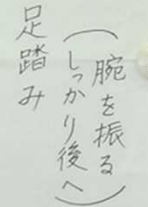 腕を振る
(しっかり後へ)
足踏み